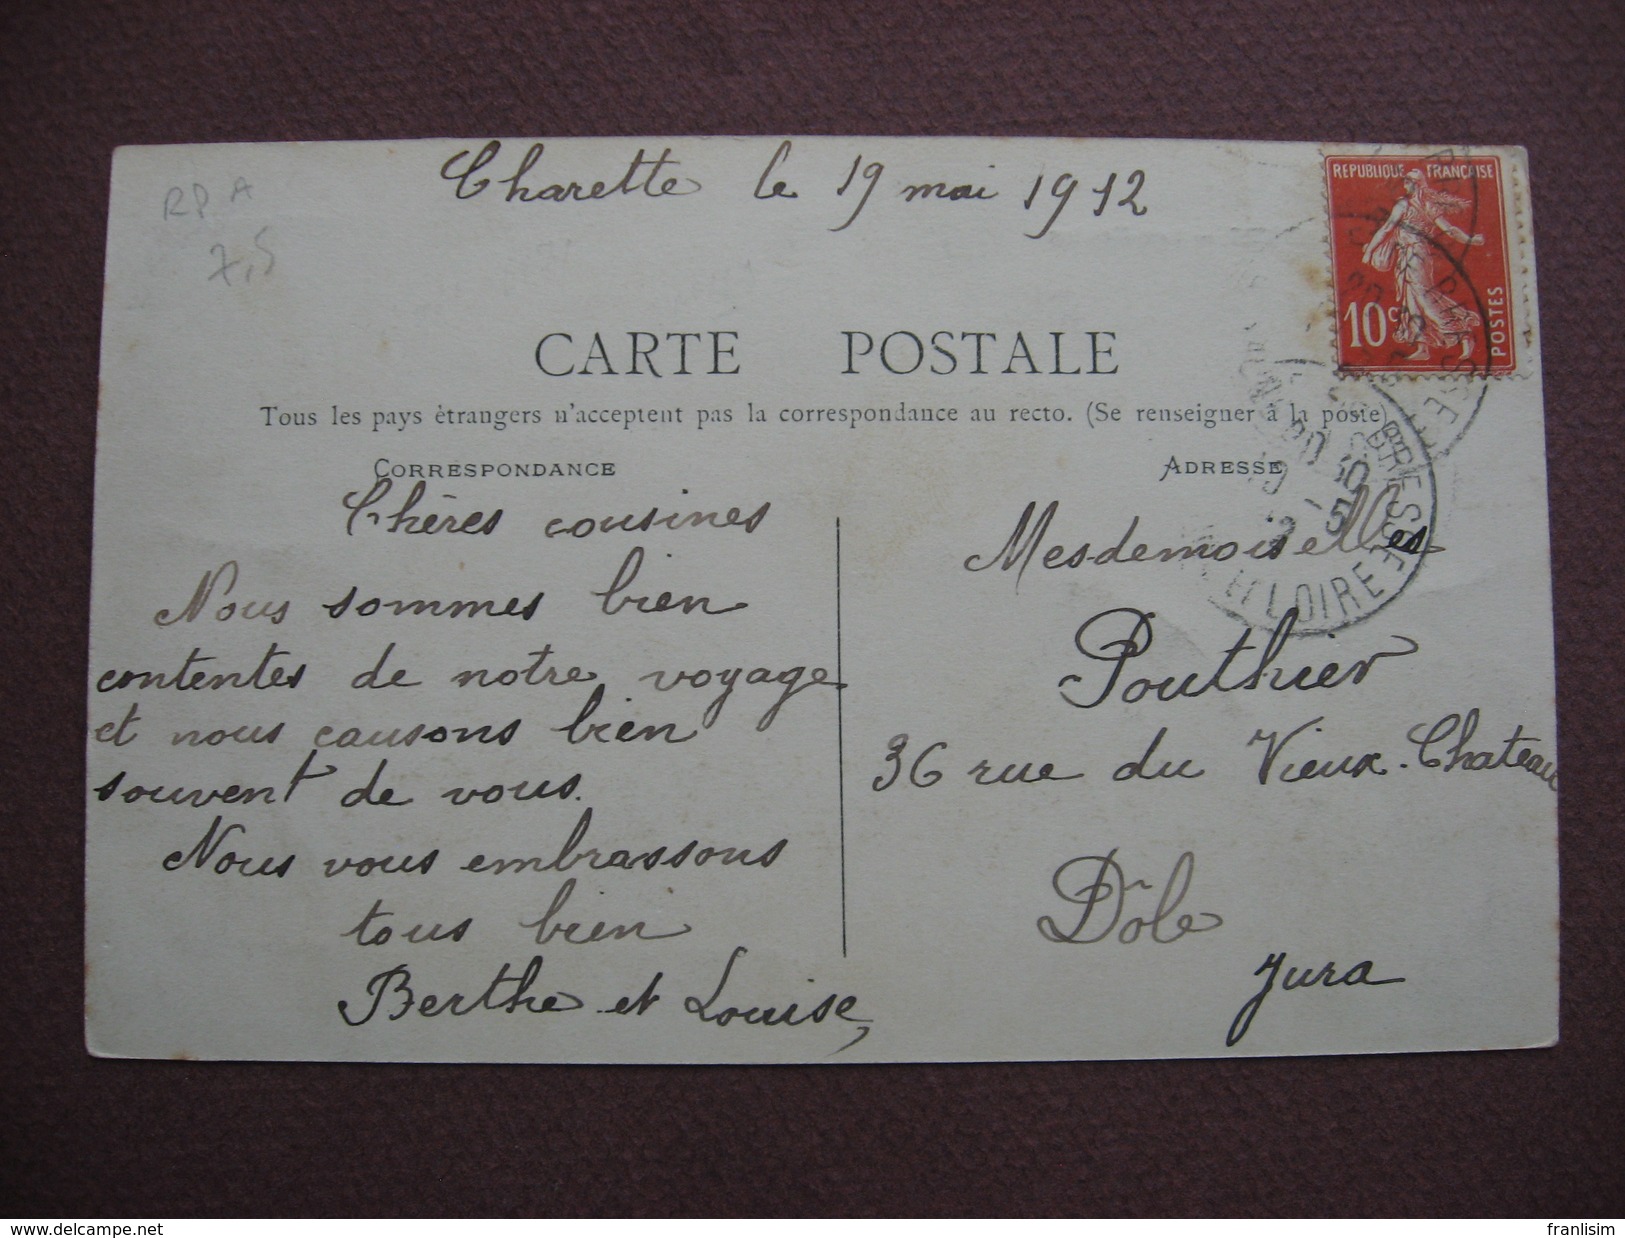 Charette le 19 mai 1912
RP A
7,5
REPUBLIQUE FRANÇAISE
10 c
POSTES
CARTE POSTALE
Tous les pays étrangers n'acceptent pas la correspondance au recto. (Se renseigner à la poste)
CORRESPONDANCE
Chères cousines
Nous sommes bien
contentes de notre voyage
et nous causons bien
souvent de vous.
Nous vous embrassons
tous bien
Berthe et Louise,
ADRESSE
Mesdemoiselles
Pouthier
36 rue du Vieux-Chateau
Dôle
Jura
BRESSE
LOIRE
www.delcampe.net
franlisim